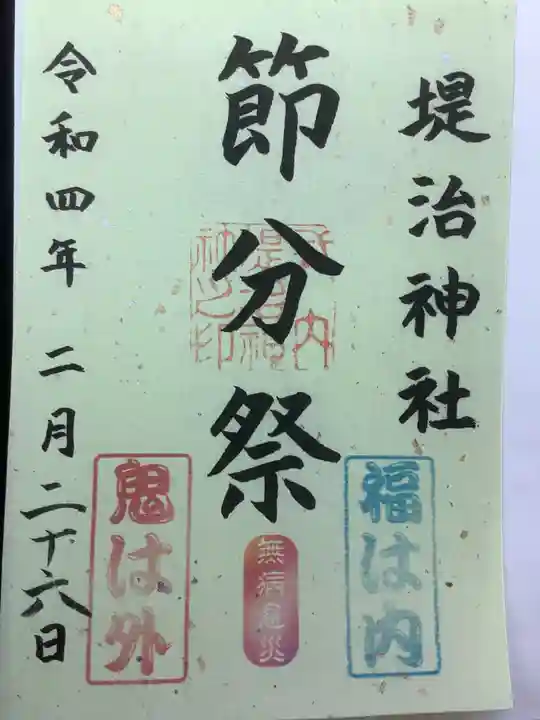 堤治神社
福は内
節分祭
無病息災
令和四年 二月二十六日
鬼は外